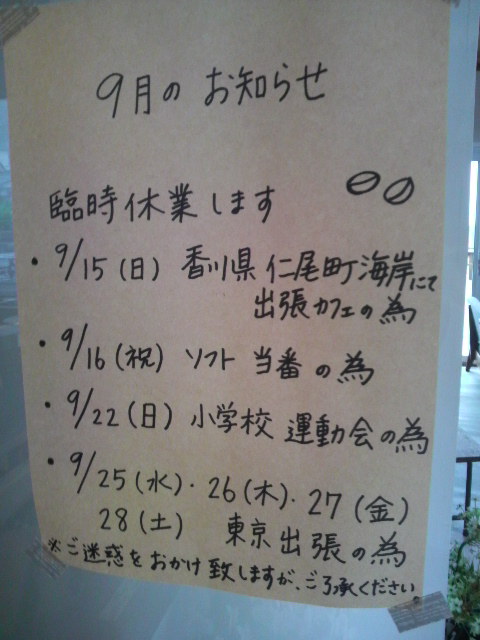 9月のお知らせ
臨時休業します
・9/15(日) 香川県仁尾町海岸にて
出張カフェの為
・9/16(祝) ソフト当番の為
・9/22(日) 小学校運動会の為
・9/25(水)・26(木)・27(金)
28(土) 東京出張の為
※ご迷惑をおかけ致しますが、ご了承ください